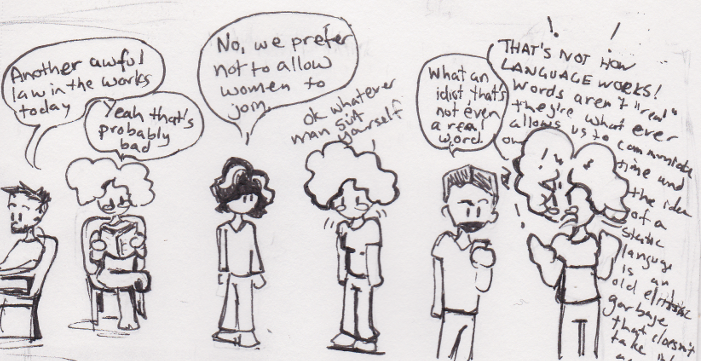 Another awful
law in the works
today
Yeah that's
probably
bad
No, we prefer
not to allow
women to
join.
ok whatever
man suit
yourself
What an
idiot that's
not even
a real
word
THAT'S NOT HOW
LANGUAGE WORKS!
Words aren't "real"
they're what ever
allows us to communicate
time and
the idea
of a
static
language
is an
old elitist
garbage
that doesn't
take